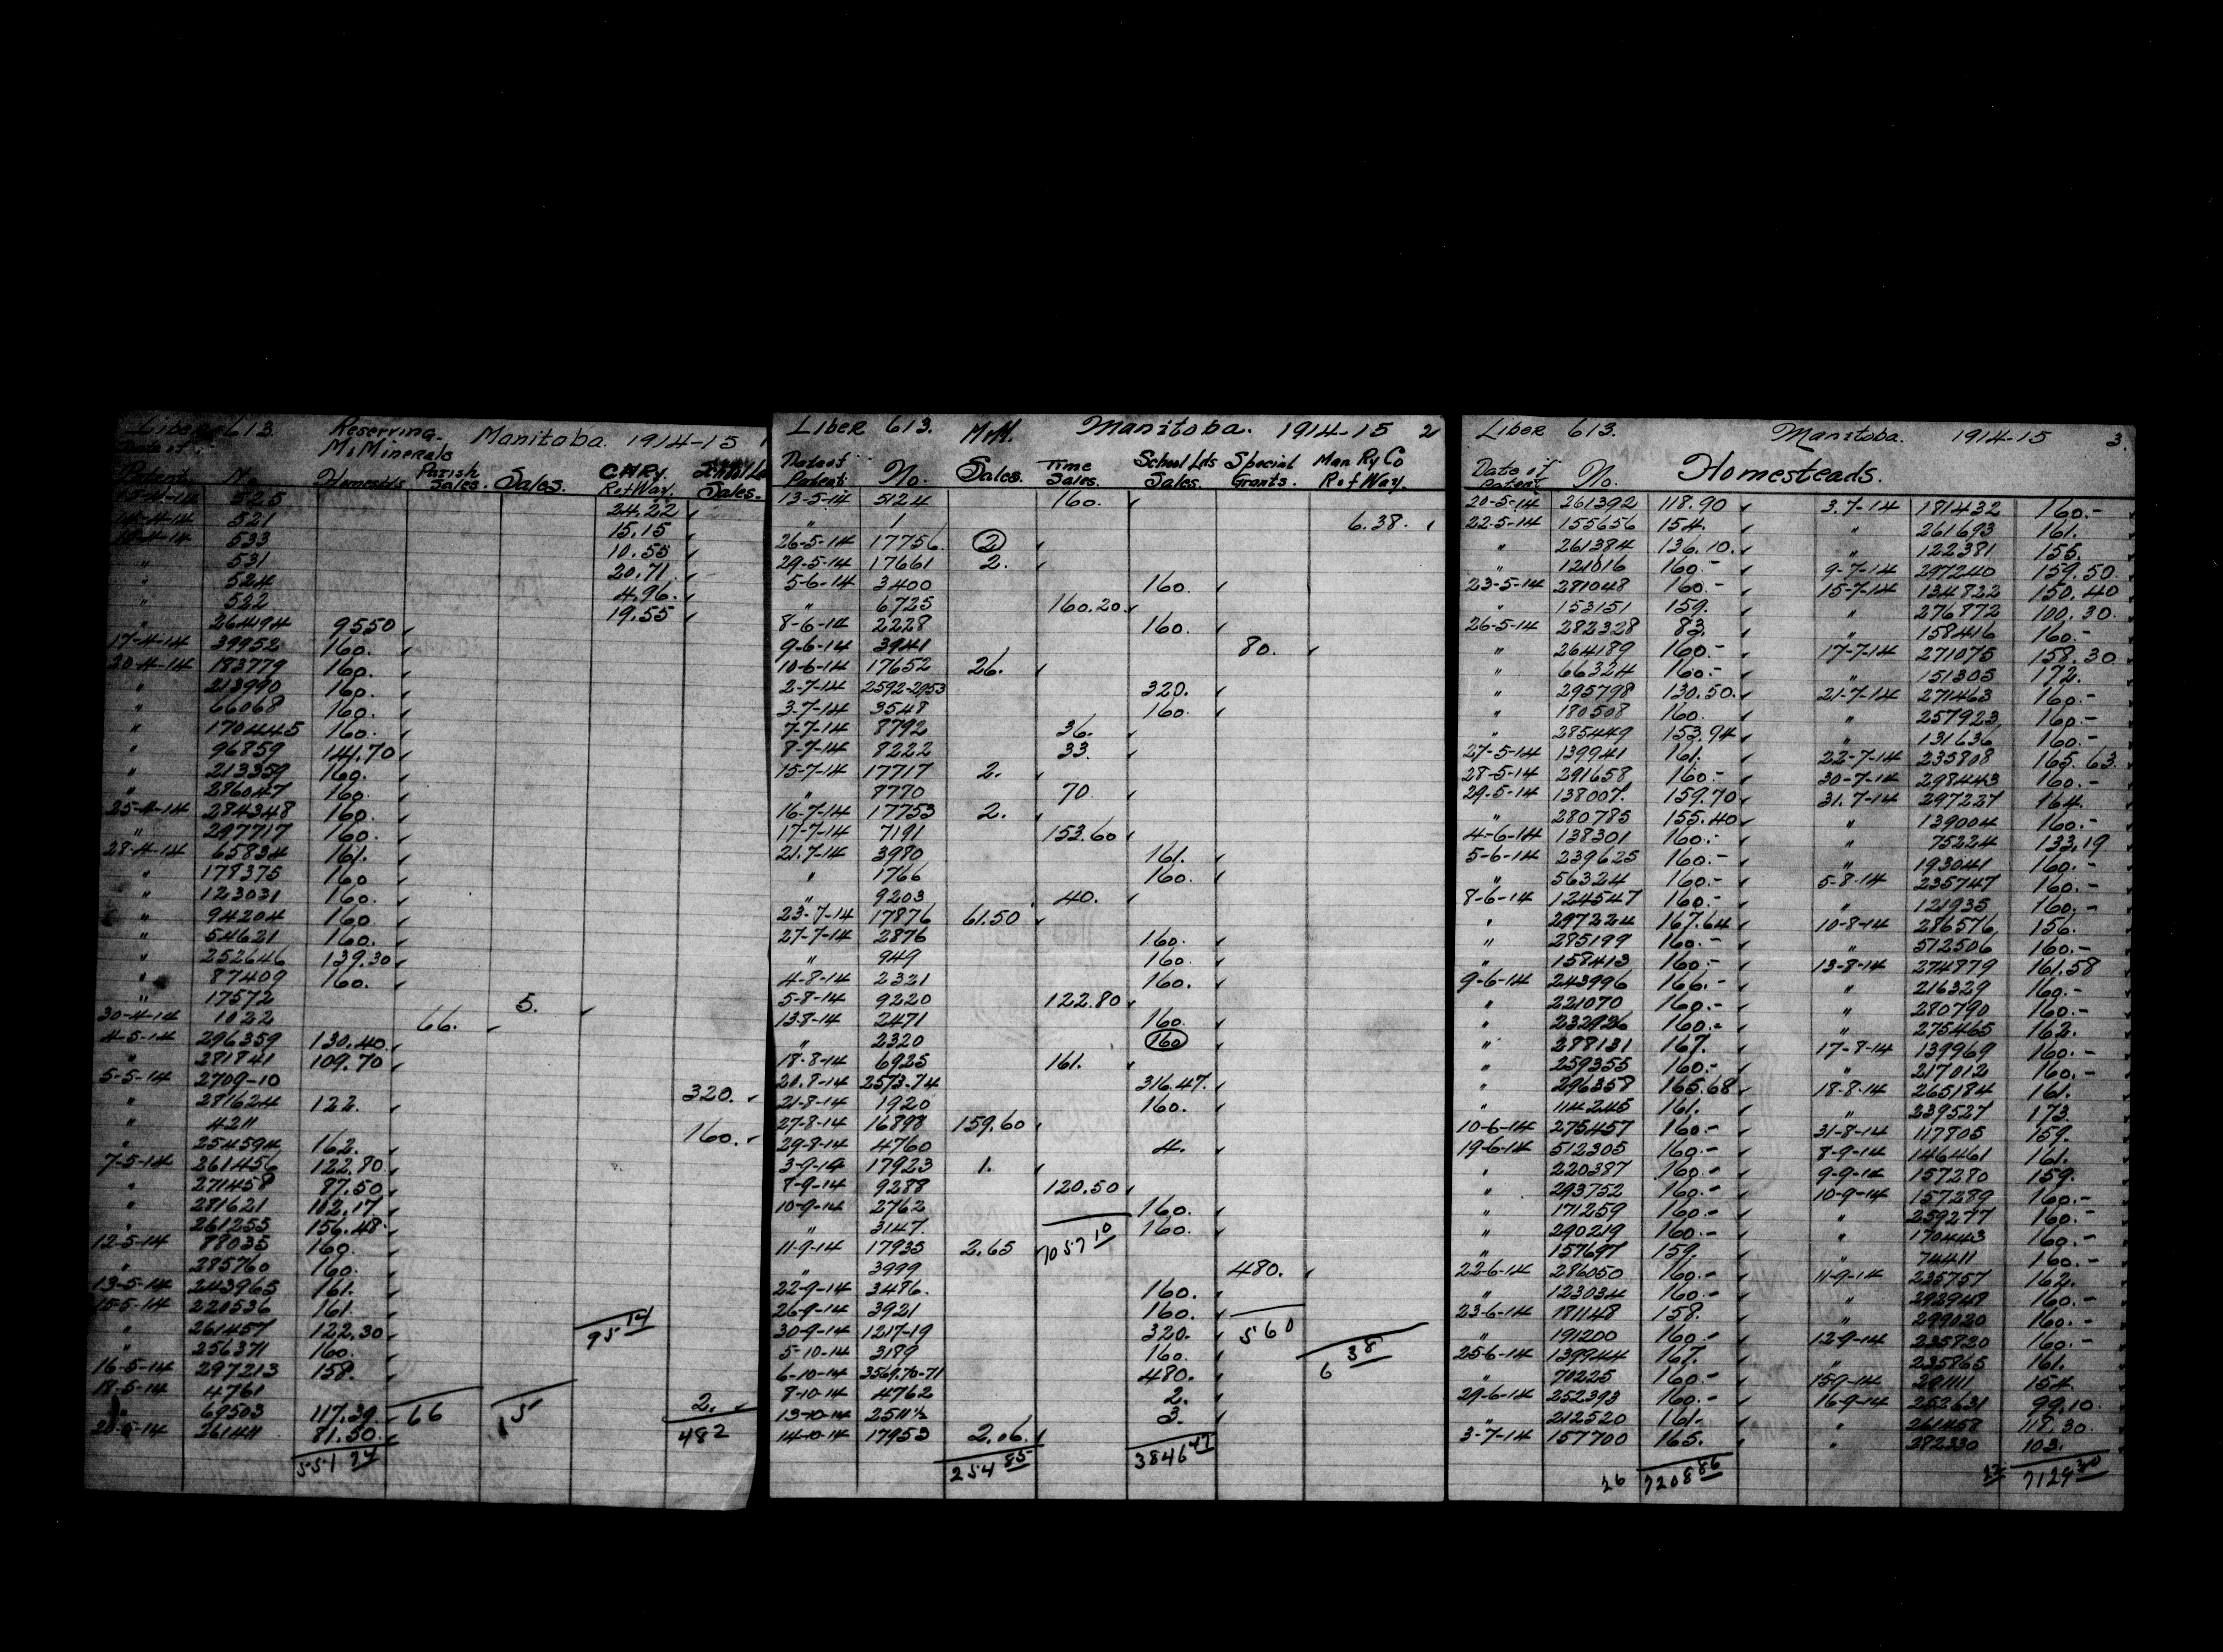 Liber 613. Reserving M. Minerals Manitoba. 1914-15 1
Date of Patent No. Homestds Parish Sales. Sales. C.N.Ry. Rof Way. Sales.
525 24.22
14-4-14 521 15.15
533 10.55
" 531 20.71
" 524 4.96.
" 522 19.55
" 264494 9550
17-4-14 39952 160.
20-4-14 183779 160.
" 213990 160.
" 66068 160.
" 170445 160.
" 96859 141.70
" 213359 160.
" 286047 160.
25-4-14 284348 160.
" 297717 160.
28-4-14 65834 161.
" 178375 160
" 123031 160.
" 94204 160
" 54621 160.
" 252646 139.30
" 87409 160.
" 17572 5.
30-4-14 1022 66.
4-5-14 296359 130.40
" 281841 109.70
5-5-14 2709-10 320.
" 281624 122.
" 4211 160.
" 254594 162.
7-5-14 261456 122.80
" 271458 87.50
" 281621 102.17
" 261255 156.48
12-5-14 88035 160.
" 285760 160.
13-5-14 243965 161.
15-5-14 220536 161.
" 261457 122.30 95 14
" 256371 160.
16-5-14 297213 158.
18-5-14 4761 2.
" 69503 117.39 66 5
20-5-14 261411 81.50 482
Liber 613. M.M. Manitoba. 1914-15 2
Date of Patent No. Sales. Time Sales. School Lds Sales. Special Grants. Man Ry Co Rof Way.
13-5-14 5124 160.
" 1 6.38.
26-5-14 17756 2
29-5-14 17661 2.
5-6-14 3400 160.
" 6725 160.20
8-6-14 2228 160.
9-6-14 3941 80.
10-6-14 17652 26.
2-7-14 2592-2953 320.
3-7-14 3548 160.
7-7-14 8792 36.
8-7-14 8222 33
15-7-14 17717 2.
" 8770 70
16-7-14 17753 2.
17-7-14 7191 153.60
21.7-14 3980 161.
" 1766 160.
" 9203 40.
23-7-14 17876 61.50
27-7-14 2876 160.
" 949 160.
4-8-14 2321 160.
5-8-14 9220 122.80
13-8-14 2471 160.
" 2320 160
18-8-14 6925 161.
20.8-14 2573-74 316.47.
21-8-14 1920 160.
27-8-14 16898 159.60
29-8-14 4760 4.
3-9-14 17923 1.
8-9-14 9288 120.50
10-9-14 2762 160.
" 3147. 160.
11-9-14 17935 2.65 1057 10
" 3999 480.
22-9-14 3486. 160.
26-9-14 3921 160.
30-9-14 1217-19 320. 560
5-10-14 3189 160. 6 38
6-10-14 3569.70-71 480.
8-10-14 4762 2.
13-10-14 2511½ 3.
14-10-14 17953 2.06.
254 85 3846 47
Liber 613. Manitoba. 1914-15 3
Date of Patent No. Homesteads.
20-5-14 261392 118.90 3.7-14 181432 160.-
22-5-14 155656 154. " 261693 161.
" 261384 136.10. " 122381 155.
" 121016 160.- 9-7-14 297240 159.50.
23-5-14 281048 160.- 15-7-14 134822 150.40
" 153151 159. " 276872 100.30.
26-5-14 282328 83. " 158416 160.-
" 264189 160.- 17-7-14 271075 158.30
" 66324 160.- " 151305 172.
" 295798 130.50. 21-7-14 271463 160.-
" 180508 160. " 257923 160.-
" 285449 153.94 " 131636 160.-
27-5-14 139941 161. 22-7-14 235808 165.63.
28-5-14 291658 160.- 30-7-14 298443 160.-
29-5-14 138007. 159.70 31.7-14 297227 164.
" 280785 155.40 " 139004 160.-
4-6-14 138301 160.- " 75224 133.19
5-6-14 239625 160.- " 193041 160.-
" 56324 160.- 5-8-14 235747 160.-
8-6-14 124547 160.- " 121935 160.-
" 297224 167.64 10-8-14 286576 156.
" 285199 160.- " 512506 160.-
" 158413 160.- 13-8-14 274879 161.58
9-6-14 243996 166.- " 216329 160.-
" 221070 160.- " 280790 160.-
" 232926 160.- " 275465 162.
" 288131 167. 17-8-14 139969 160.-
" 259355 160.- " 217012 160.-
" 296358 165.68 18-8-14 265184 161.
" 114245 161. " 239527 173.
10-6-14 275457 160.- 31-8-14 117805 159.
19-6-14 512305 160.- 8-9-14 146461 161.
" 220387 160.- 9-9-14 157280 159.
" 293752 160.- 10-9-14 157289 160.-
" 171259 160.- " 259277 160.-
" 290219 160.- " 170443 160.-
" 157697 159. " 74411 160.-
22-6-14 286050 160.- 11-9-14 235757 162.
" 123034 160.- " 292948 160.-
23-6-14 181148 158. " 299020 160.-
" 191200 160.- 12-9-14 235820 160.-
25-6-14 139944 167. " 235865 161.
" 70225 160.- 15-9-14 291111 154.
29-6-14 252393 160.- 16-9-14 252631 99.10.
" 212520 161. " 261458 118.30.
3-7-14 157700 165. " 282330 103.
7208 86 7129 30